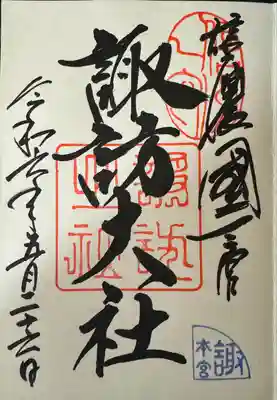 信濃國一之宮
諏訪大社
諏訪大社
令和六年五月二十六日
諏
本宮